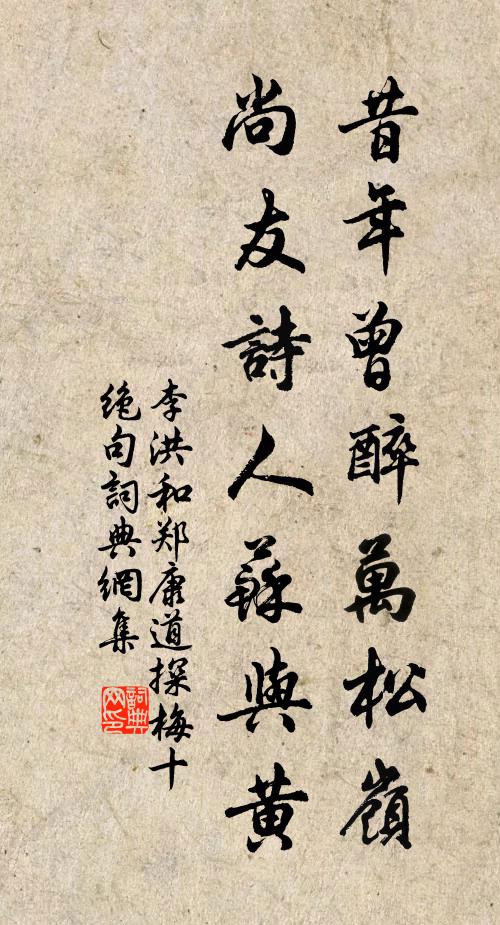 昔年曾醉萬松嶺
尚友詩人蘇與黃
李洪和郑康道探梅十
絶句詞典網集
詞典网印